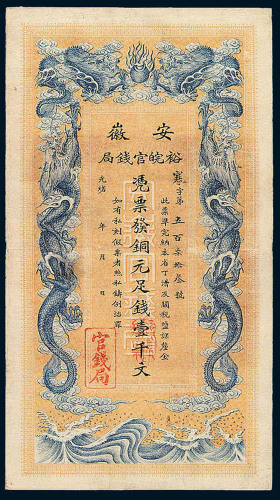 安徽
裕皖官錢局
寒字第五百柒拾叁號
此票準完納本省丁漕及關稅鹽課釐金
憑票發銅元足錢壹千文
如有私刻假票者照私鑄例治罪
光緒 年 月 日
官錢局